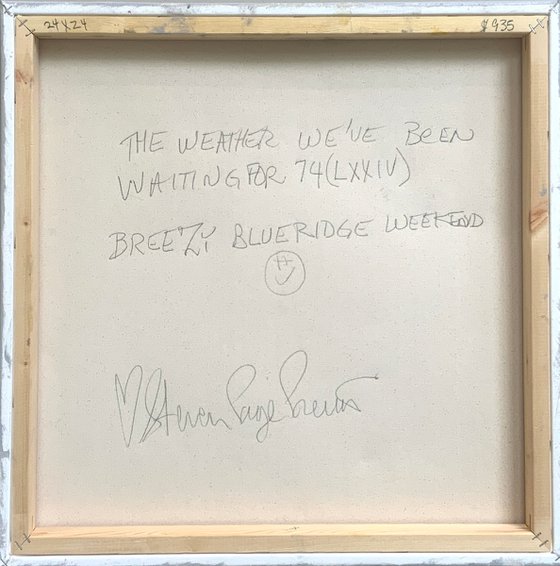 24X24
$935
THE WEATHER WE'VE BEEN
WAITING FOR 74(LXXIV)
BREEZY BLUERIDGE WEEKEND
Steven Page Prewitt